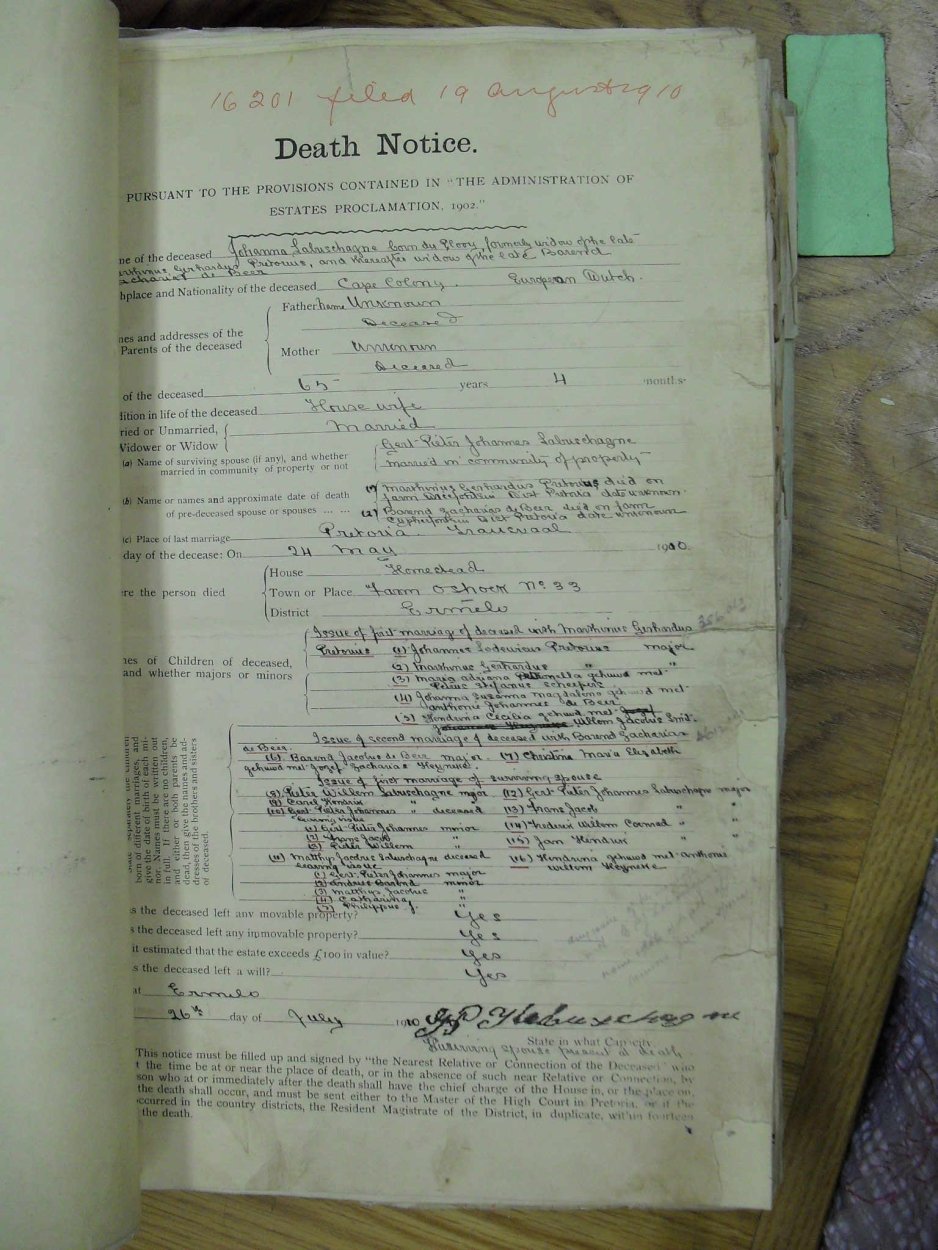 16201 filed 19 August 1910
Death Notice.
PURSUANT TO THE PROVISIONS CONTAINED IN "THE ADMINISTRATION OF
ESTATES PROCLAMATION, 1902."
me of the deceased Johanna Labuschagne born du Plooy, formerly widow of the late
Gerhardus Pretorius, and thereafter widow of the late Barend
de Beer
hplace and Nationality of the deceased Cape Colony. European Dutch.
Father name Unknown
Deceased
nes and addresses of the
Parents of the deceased
Mother Unknown
Deceased
of the deceased 65 years 4 months
lition in life of the deceased House wife
ried or Unmarried, Married
Widower or Widow
(a) Name of surviving spouse (if any), and whether
married in community of property or not
Gert Pieter Johannes Labuschagne
married in community of property
(b) Name or names and approximate date of death
of pre-deceased spouse or spouses ... ...
(1) Marthinus Gerhardus Pretorius died on
farm Dist Pretoria date unknown.
(2) Barend Zacharias de Beer died on farm
Dist Pretoria date unknown
(c) Place of last marriage Pretoria. Transvaal
day of the decease: On 24 May 1910.
House Homestead
ere the person died Town or Place Farm Oshoek No. 33
District Ermelo
Issue of first marriage of deceased with Marthinus Gerhardus
Pretorius (1) Johannes Lodewicus Pretorius major
nes of Children of deceased,
and whether majors or minors
(2) Marthinus Gerhardus " "
(3) Maria Adriana Petronella gehuwd met
Petrus Stefanus Scheepers
(4) Johanna Susanna Magdalena gehuwd met
Anthonie Johannes de Beer
(5) Hendrina Cecilia gehuwd met
Willem Jacobus Smit.
Issue of second marriage of deceased with Barend Zacharias
de Beer.
(6) Barend Jacobus de Beer major. (7) Christina Maria Elizabeth
gehuwd met Josef Zacharias
Issue of first marriage of surviving spouse
(8) Pieter Willem Labuschagne major (12) Gert Pieter Johannes Labuschagne major
(9) Carel Hendrik " (13) Frans Jacob " "
(10) Gert Pieter Johannes " deceased
leaving issue (14) Frederik Willem Coenrad " "
(1) Gert Pieter Johannes minor
(2) Frans Jacob " (15) Jan Hendrik " "
(3) Pieter Willem "
(11) Matthys Jacobus Labuschagne deceased (16) Hendrina gehuwd met Anthonie
leaving issue Willem
(1) Gert Pieter Johannes major
(2) Andries Barend minor
(3) Matthys Jacobus "
(4) Catharina "
(5) Philippus J. "
born of different marriages, and
give the date of birth of each mi-
nor. Names must be written out
in full. If there are no children,
and either or both parents be
dead, then give the names and ad-
dresses of the brothers and sisters
of deceased.
s the deceased left any movable property? Yes
s the deceased left any immovable property? Yes
it estimated that the estate exceeds £100 in value? Yes
s the deceased left a will? Yes
at Ermelo
26th day of July 1910 Labuschagne
State in what Capacity
Surviving spouse present at death
This notice must be filled up and signed by "the Nearest Relative or Connection of the Deceased" who
t the time be at or near the place of death, or in the absence of such near Relative or Connection, by
son who at or immediately after the death shall have the chief charge of the House in, or the place on,
the death shall occur, and must be sent either to the Master of the High Court in Pretoria, or if the
ccurred in the country districts, the Resident Magistrate of the District, in duplicate, within fourteen
the death.